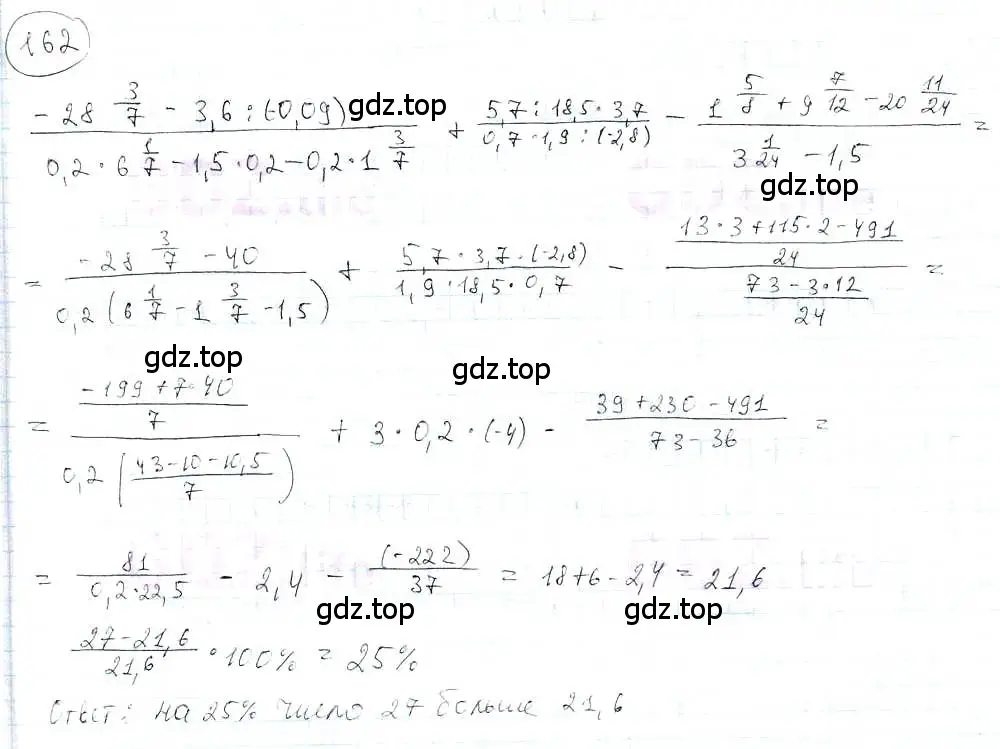 162
(-28 3/7 - 3,6 : (-0,09)) / (0,2 · 6 1/7 - 1,5 · 0,2 - 0,2 · 1 3/7) + (5,7 : 18,5 · 3,7) / (0,7 · 1,9 : (-2,8)) - (1 5/8 + 9 7/12 - 20 11/24) / (3 1/24 - 1,5) =
gdz.top
gdz.top
= (-28 3/7 - 40) / (0,2 (6 1/7 - 1 3/7 - 1,5)) + (5,7 · 3,7 · (-2,8)) / (1,9 · 18,5 · 0,7) - ((13 · 3 + 115 · 2 - 491) / 24) / ((73 - 3 · 12) / 24) =
gdz.top
gdz.top
= ((-199 + 7 · 40) / 7) / (0,2 ((43 - 10 - 10,5) / 7)) + 3 · 0,2 · (-4) - (39 + 230 - 491) / (73 - 36) =
= 81 / (0,2 · 22,5) - 2,4 - (-222) / 37 = 18 + 6 - 2,4 = 21,6
gdz.top
gdz.top
(27 - 21,6) / 21,6 · 100% = 25%
Ответ: на 25% число 27 больше 21,6